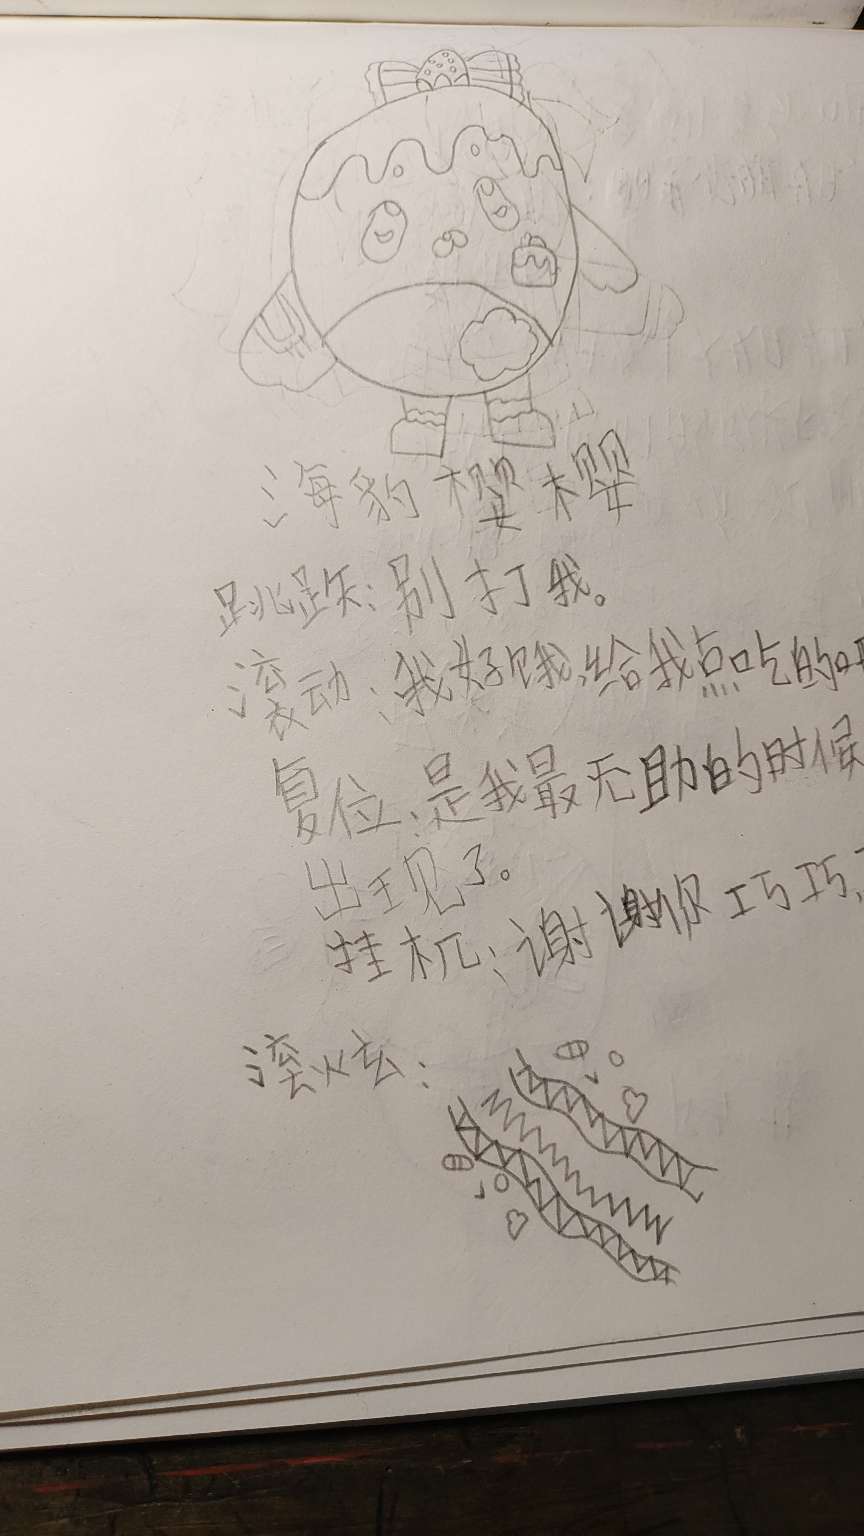 海豹樱樱
跳跃：别打我。
滚动：我好饿，给我点吃的吧
复位：是我最无助的时候
出现了。
挂机：谢谢你巧巧，
滚炫：